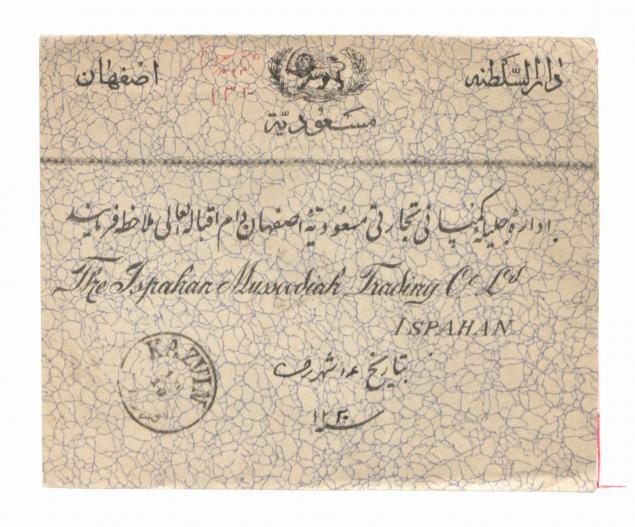 دارالسّلطنه اصفهان
مسعودیّة
اداره جلیله کمپانی تجارتی مسعودیّهٔ اصفهان دام اقباله العالی ملاحظه فرمایند
The Ispahan Mussoodiah Trading Co Ld
ISPAHAN
بتاریخ شهر
KAZVIN